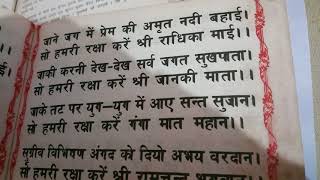 जाने जग में प्रेम की अमृत नदी बहाई।
सो हमरी रक्षा करें श्री राधिका माई।।
जाकी करनी देख-देख सर्व जगत सुखपाता।
सो हमरी रक्षा करें श्री जानकी माता।।
जाके तट पर युग-युग में आए सन्त सुजान।
सो हमरी रक्षा करें गंगा मात महान।।
सुग्रीव विभिषण अंगद को दियो अभय वरदान।
सो हमरी रक्षा करें श्री रामचन्द्र भगवान।।